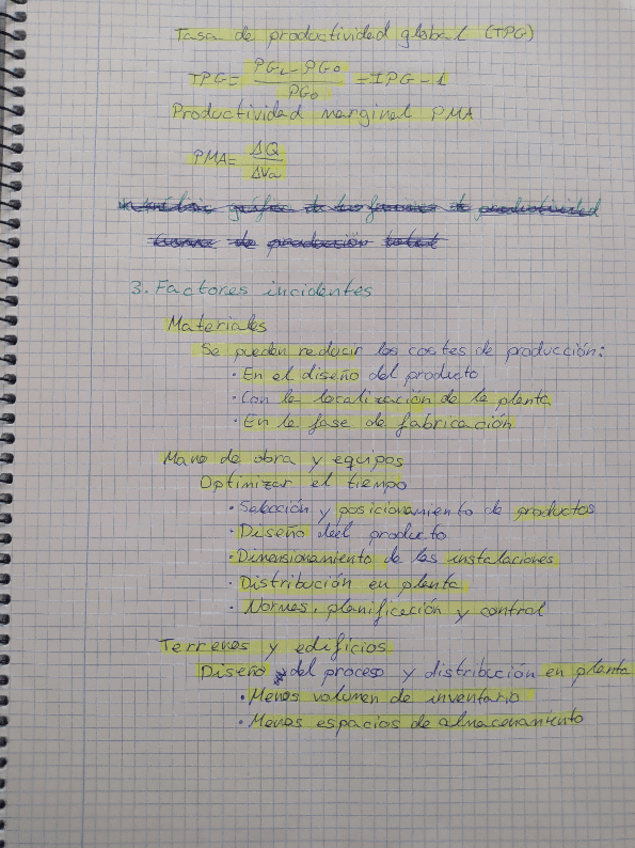 Tasa de productividad global (TPG)
TPG = PG₁ - PG₀ / PG₀ = IPG - 1
Productividad marginal PMA
PMA = ΔQ / ΔVa
gráfico de productividad
de producción total
3. Factores incidentes
Materiales
Se pueden reducir los costes de producción:
· En el diseño del producto
· Con la localización de la planta
· En la fase de fabricación
Mano de obra y equipos
Optimizar el tiempo
· Selección y posicionamiento de productos
· Diseño del producto
· Dimensionamiento de las instalaciones
· Distribución en planta
· Normas, planificación y control
Terrenos y edificios
Diseño del proceso y distribución en planta
· Menos volumen de inventario
· Menos espacios de almacenamiento